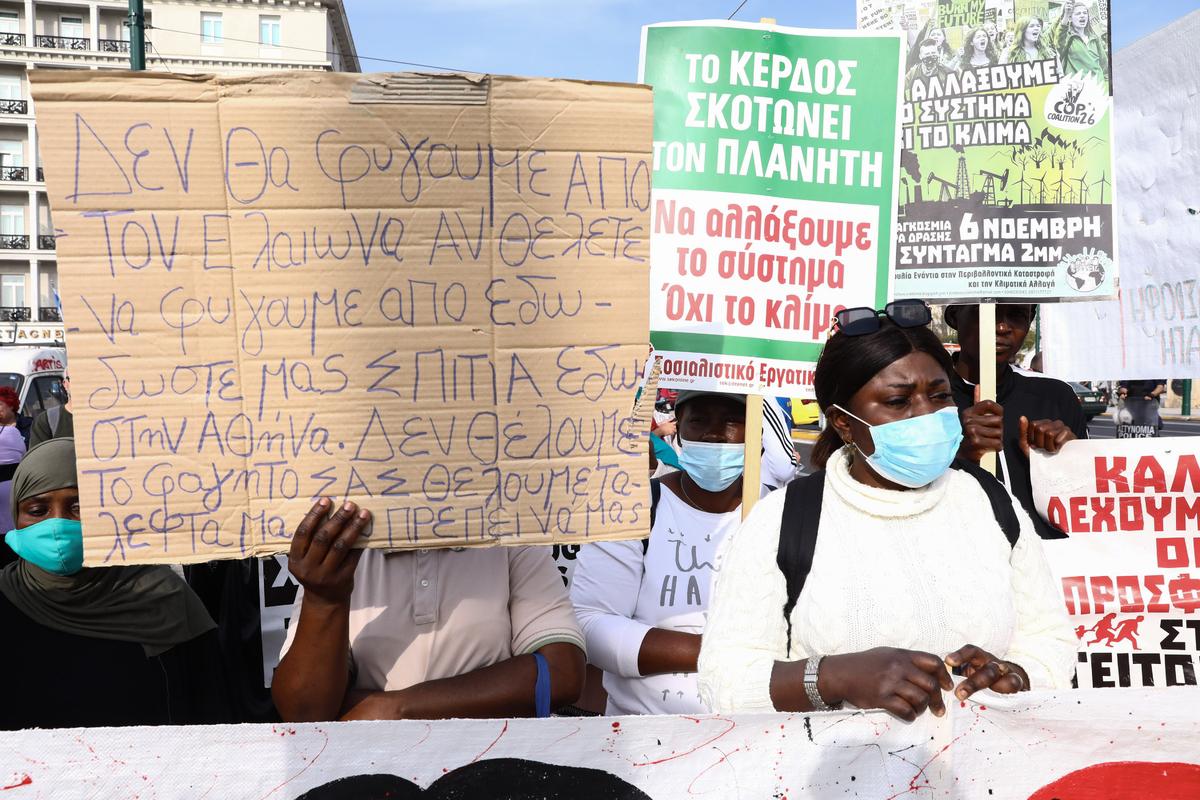 ΔΕΝ Θα φυγουμε ΑΠΟ
ΤΟΝ Ελαιωνα ΑΝ Θελετε
-να φυγουμε απο εδω-
δωστε μας ΣΠΙΤΙΑ Εδω
στην Αθήνα. Δεν θέλουμε
Το φαγητο ΣΑΣ Θελουμε τα-
λεφτα μας ΠΡΕΠΕΙ να μας
το ΚΕΡΔΟΣ
ΣΚΟΤΩΝΕΙ
ΤΟΝ ΠΛΑΝΗΤΗ
Να αλλάξουμε
το σύστημα
Όχι το κλίμα
Σοσιαλιστικό Εργατικ
BURN MY
FUTURE
ΑΛΛΑΞΟΥΜΕ
Ο ΣΥΣΤΗΜΑ
ΤΟ ΚΛΙΜΑ
COP
COALITION26
6 ΝΟΕΜΒΡΗ
ΣΥΝΤΑΓΜΑ 2ΜΜ
Ενάντια στην Περιβαλλοντική Καταστροφή
και την Κλιματική Αλλαγή
ARTIS
ΚΑΛ
ΔΕΧΟΥΜ
ΟΙ
ΠΡΟΣΦ
ΣΤ
ΓΕΙΤΟ